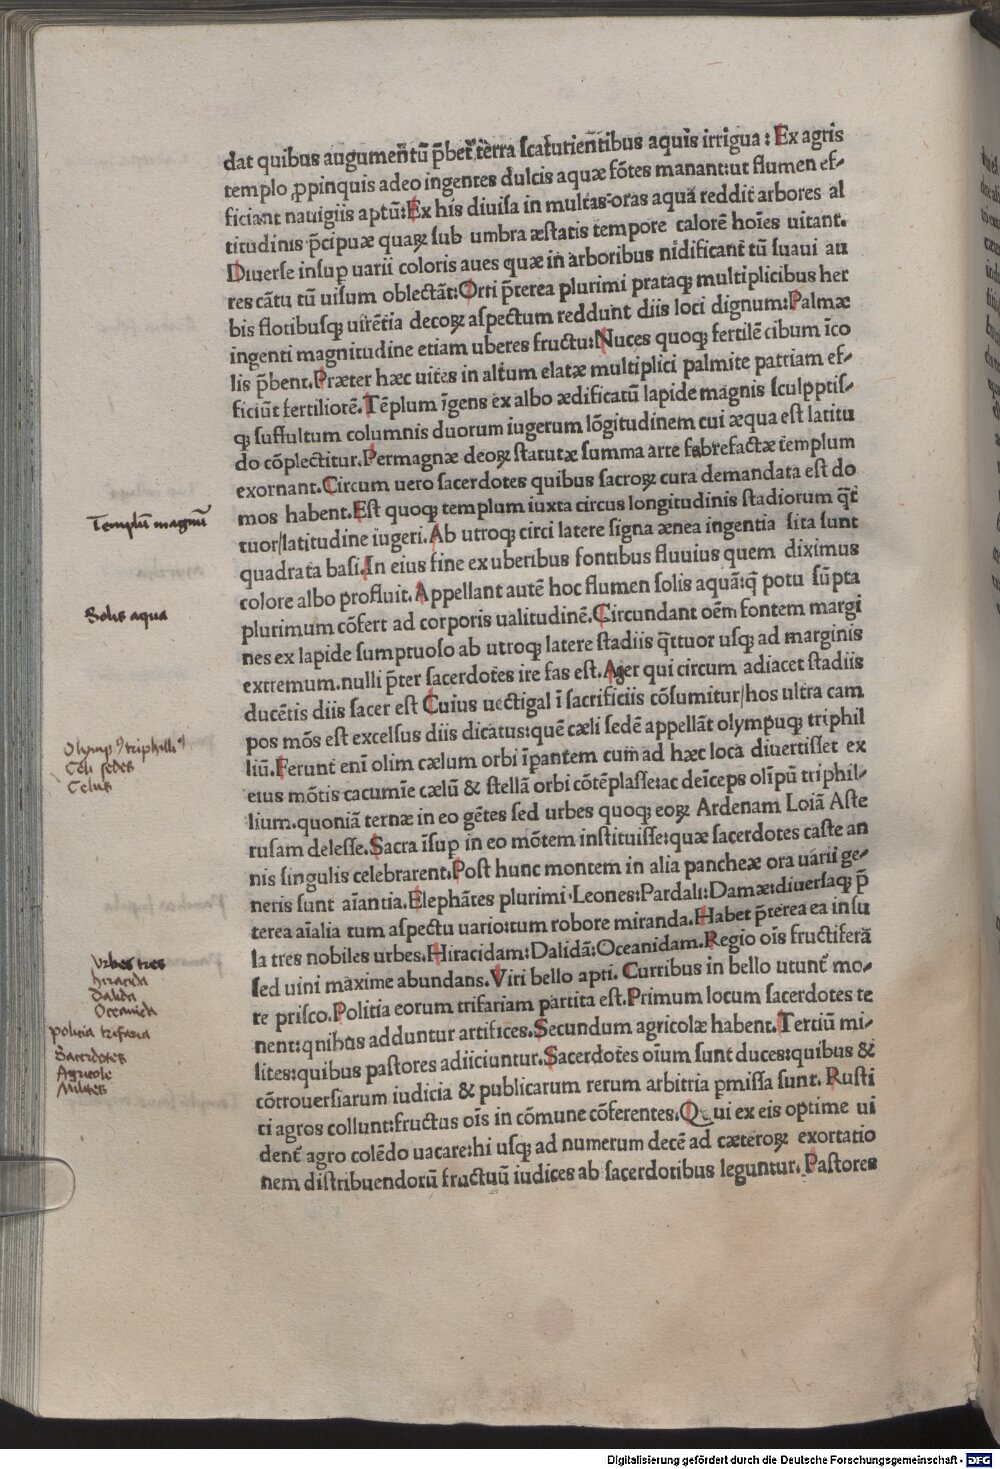 dat quibus augumen̄tū p̄bet terra ſcaturientibus aquis irrigua: Ex agris
templo ꝓpinquis adeo ingentes dulcis aquæ fōtes manant:ut flumen ef-
ficiant nauigiis aptū:Ex his diuiſa in multas oras aqua reddit arbores al
titudinis p̄cipuæ quaꝝ ſub umbra æſtatis tempore calorē hoīes uitant.
Diuerſe inſuꝑ uarii coloris aues quæ in arboribus nidificant tū ſuaui au
res cātu tū uiſum oblectāt:Orti p̄terea plurimi prataqꝫ multiplicibus her
bis floribuſqꝫ uirētia decoꝝ aſpectum reddunt diis loci dignum:Palmæ
ingenti magnitudine etiam uberes fructu:Nuces quoqꝫ fertilē cibum īco
lis p̄bent.Præter hæc uites in altum elatæ multiplici palmite patriam ef-
ficiūt fertiliorē.Tēplum īgens ex albo ædificatū lapide magnis ſculpptiſ-
qꝫ ſuffultum columnis duorum iugerum lōgitudinem cui æqua eſt latitu
do cōplectitur.Permagnæ deoꝝ ſtatutæ ſumma arte fabrefactæ templum
exornant.Circum uero ſacerdotes quibus ſacroꝝ cura demandata eſt do
mos habent.Eſt quoqꝫ templum iuxta circus longitudinis ſtadiorum q̄t
tuor/latitudine iugeri.Ab utroqꝫ circi latere ſigna ænea ingentia ſita ſunt
quadrata baſi.In eius fine ex uberibus fontibus fluuius quem diximus
colore albo profluit.Appellant autē hoc flumen ſolis aquā:iq̄ potu ſūpta
plurimum cōfert ad corporis ualitudinē.Circundant oēm fontem margi
nes ex lapide ſumptuoſo ab utroqꝫ latere ſtadiis q̄ttuor uſqꝫ ad marginis
extremum.nulli p̄ter ſacerdotes ire fas eſt.Ager qui circum adiacet ſtadiis
ducētis diis ſacer eſt Cuius uectigal ī ſacrificiis cōſumitur/hos ultra cam
pos mōs eſt excelſus diis dicatus:quē cæli ſedē appellāt olympuqꝫ triphil
liū.Ferunt enī olim cælum orbi īpantem cum ad hæc loca diuertiſſet ex
eius mōtis cacumīe cælū & ſtellā orbi cōtēplaſſe:ac deīceps olīpū triphil-
lium.quoniā ternæ in eo gētes ſed urbes quoqꝫ eoꝝ Ardenam Loiā Aſte
ruſam deleſſe.Sacra īſuꝑ in eo mōtem inſtituiſſe:quæ ſacerdotes caſte an
nis ſingulis celebrarent.Poſt hunc montem in alia pancheæ ora uarii ge-
neris ſunt aīantia.Elephātes plurimi.Leones:Pardali:Damæ:diuerſaqꝫ p̄
terea aīalia tum aſpectu uario:tum robore miranda.Habet p̄terea ea inſu
la tres nobiles urbes.Hiracidam:Dalidā:Oceanidam.Regio oīs fructiferā
ſed uini maxime abundans.Viri bello apti. Curribus in bello utunt mo-
re priſco.Politia eorum trifariam partita eſt.Primum locum ſacerdotes te
nent:qnibus adduntur artifices.Secundum agricolæ habent.Tertiū mi-
lites:quibus paſtores adiiciuntur.Sacerdotes oīum ſunt duces:quibus &
cōtrouerſiarum iudicia & publicarum rerum arbitria ꝑmiſſa ſunt. Ruſti
ci agros collunt:fructus oīs in cōmune cōferentes.Qui ex eis optime ui
dent agro colēdo uacare:hi uſqꝫ ad numerum decē ad cæteroꝝ exortatio
nem diſtribuendorū fructuū iudices ab ſacerdotibus leguntur. Paſtores
Templū magnū
Solis aqua
Celi sedes
Celus
Vrbes tres
hiracida
Dalida
Oceanida
policia trifaria
Sacerdotes
Agricole
Milites
Digitalisierung gefördert durch die Deutsche Forschungsgemeinschaft - DFG